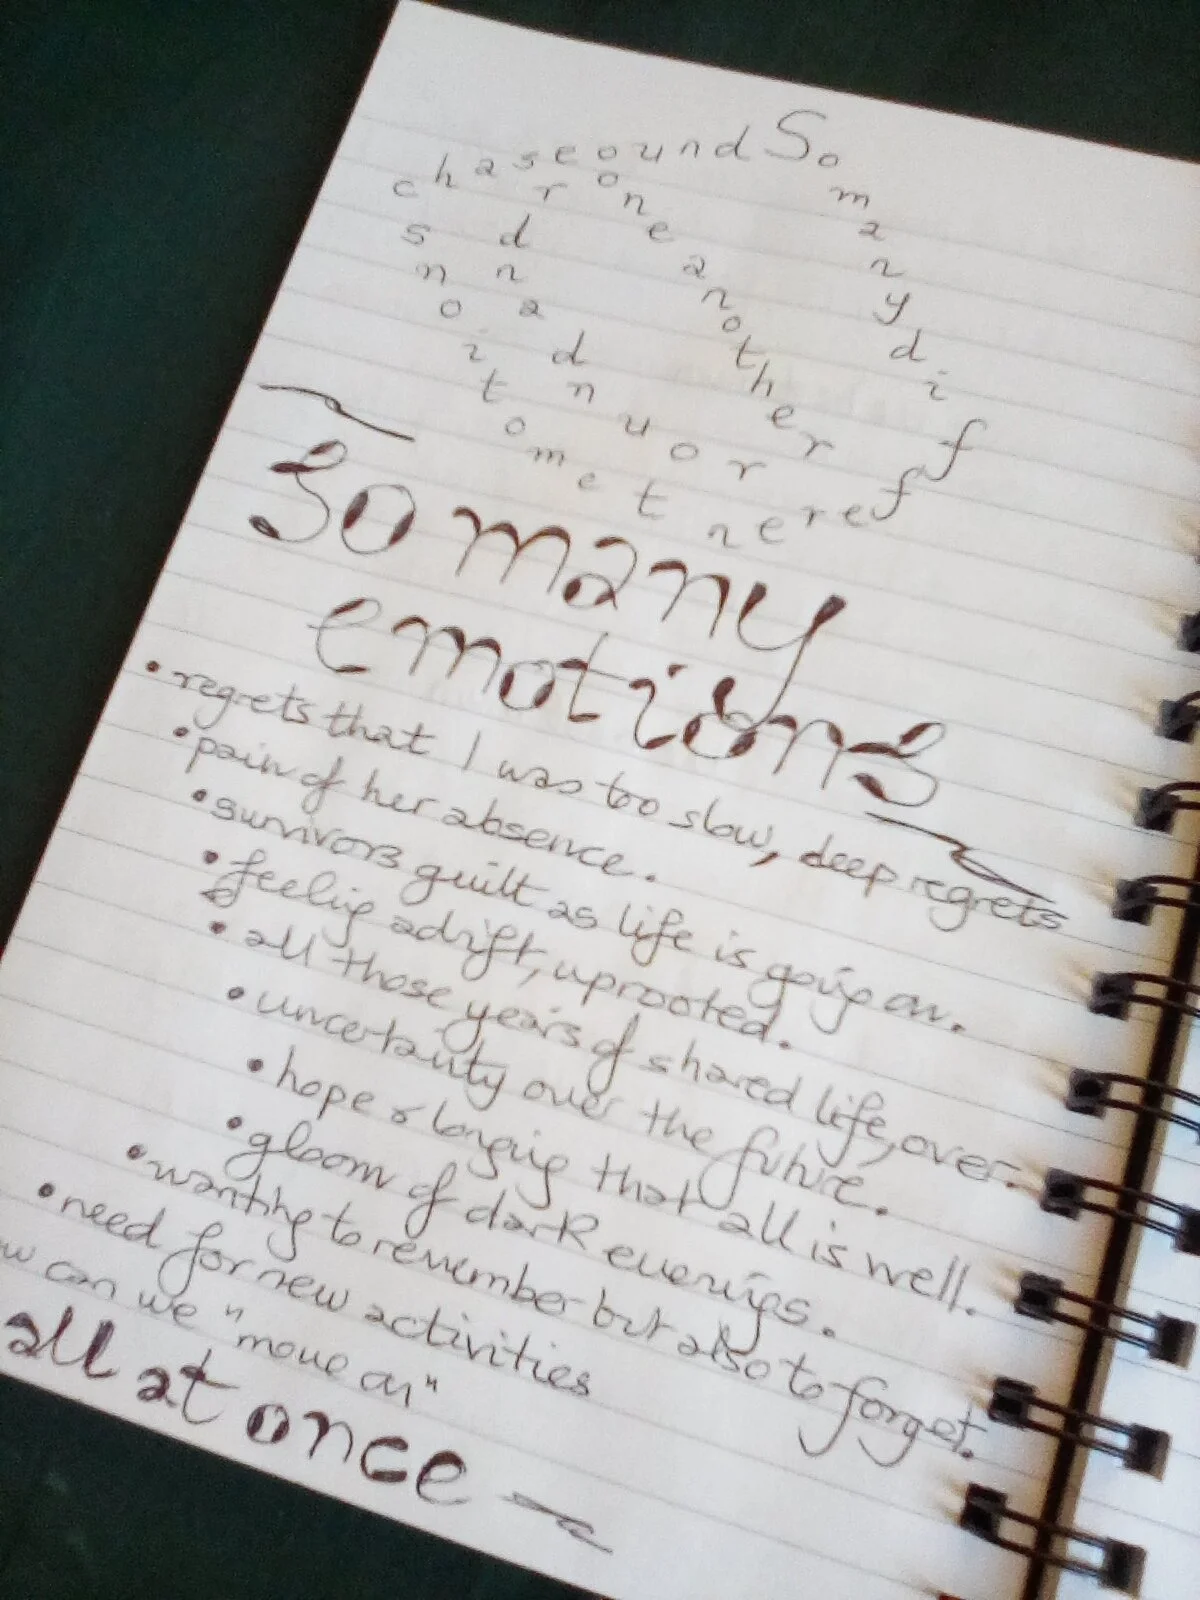 So many different emotions chase one another round and round
So many
emotions
• regrets that I was too slow, deep regrets
• pain of her absence.
• survivors guilt as life is going on.
• feeling adrift, uprooted.
• all those years of shared life, over.
• uncertainty over the future.
• hope & longing that all is well.
• gloom of dark evenings.
• wanting to remember but also to forget.
• need for new activities
w can we "move on"
all at once